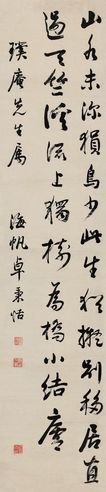 山水未深猿鳥少此生猶擬別移居直
過天竺溪流上獨樹為橋小結廬
璞庵先生屬
海帆卓秉恬